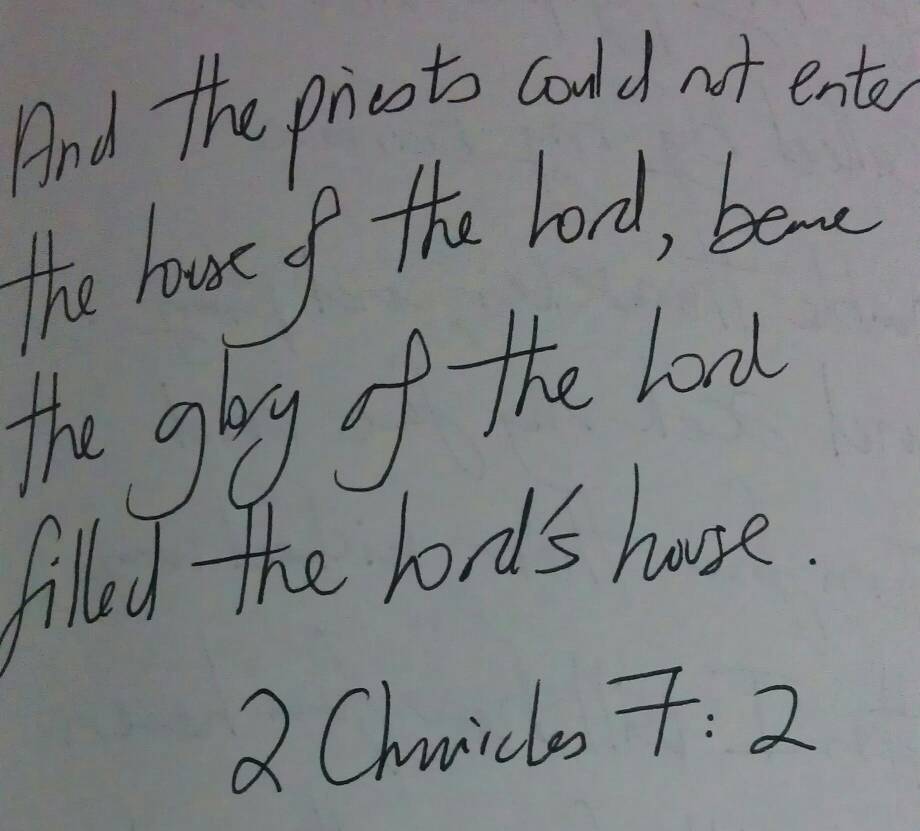 And the priests could not enter
the house of the Lord, because
the glory of the Lord
filled the Lord's house.
2 Chronicles 7:2